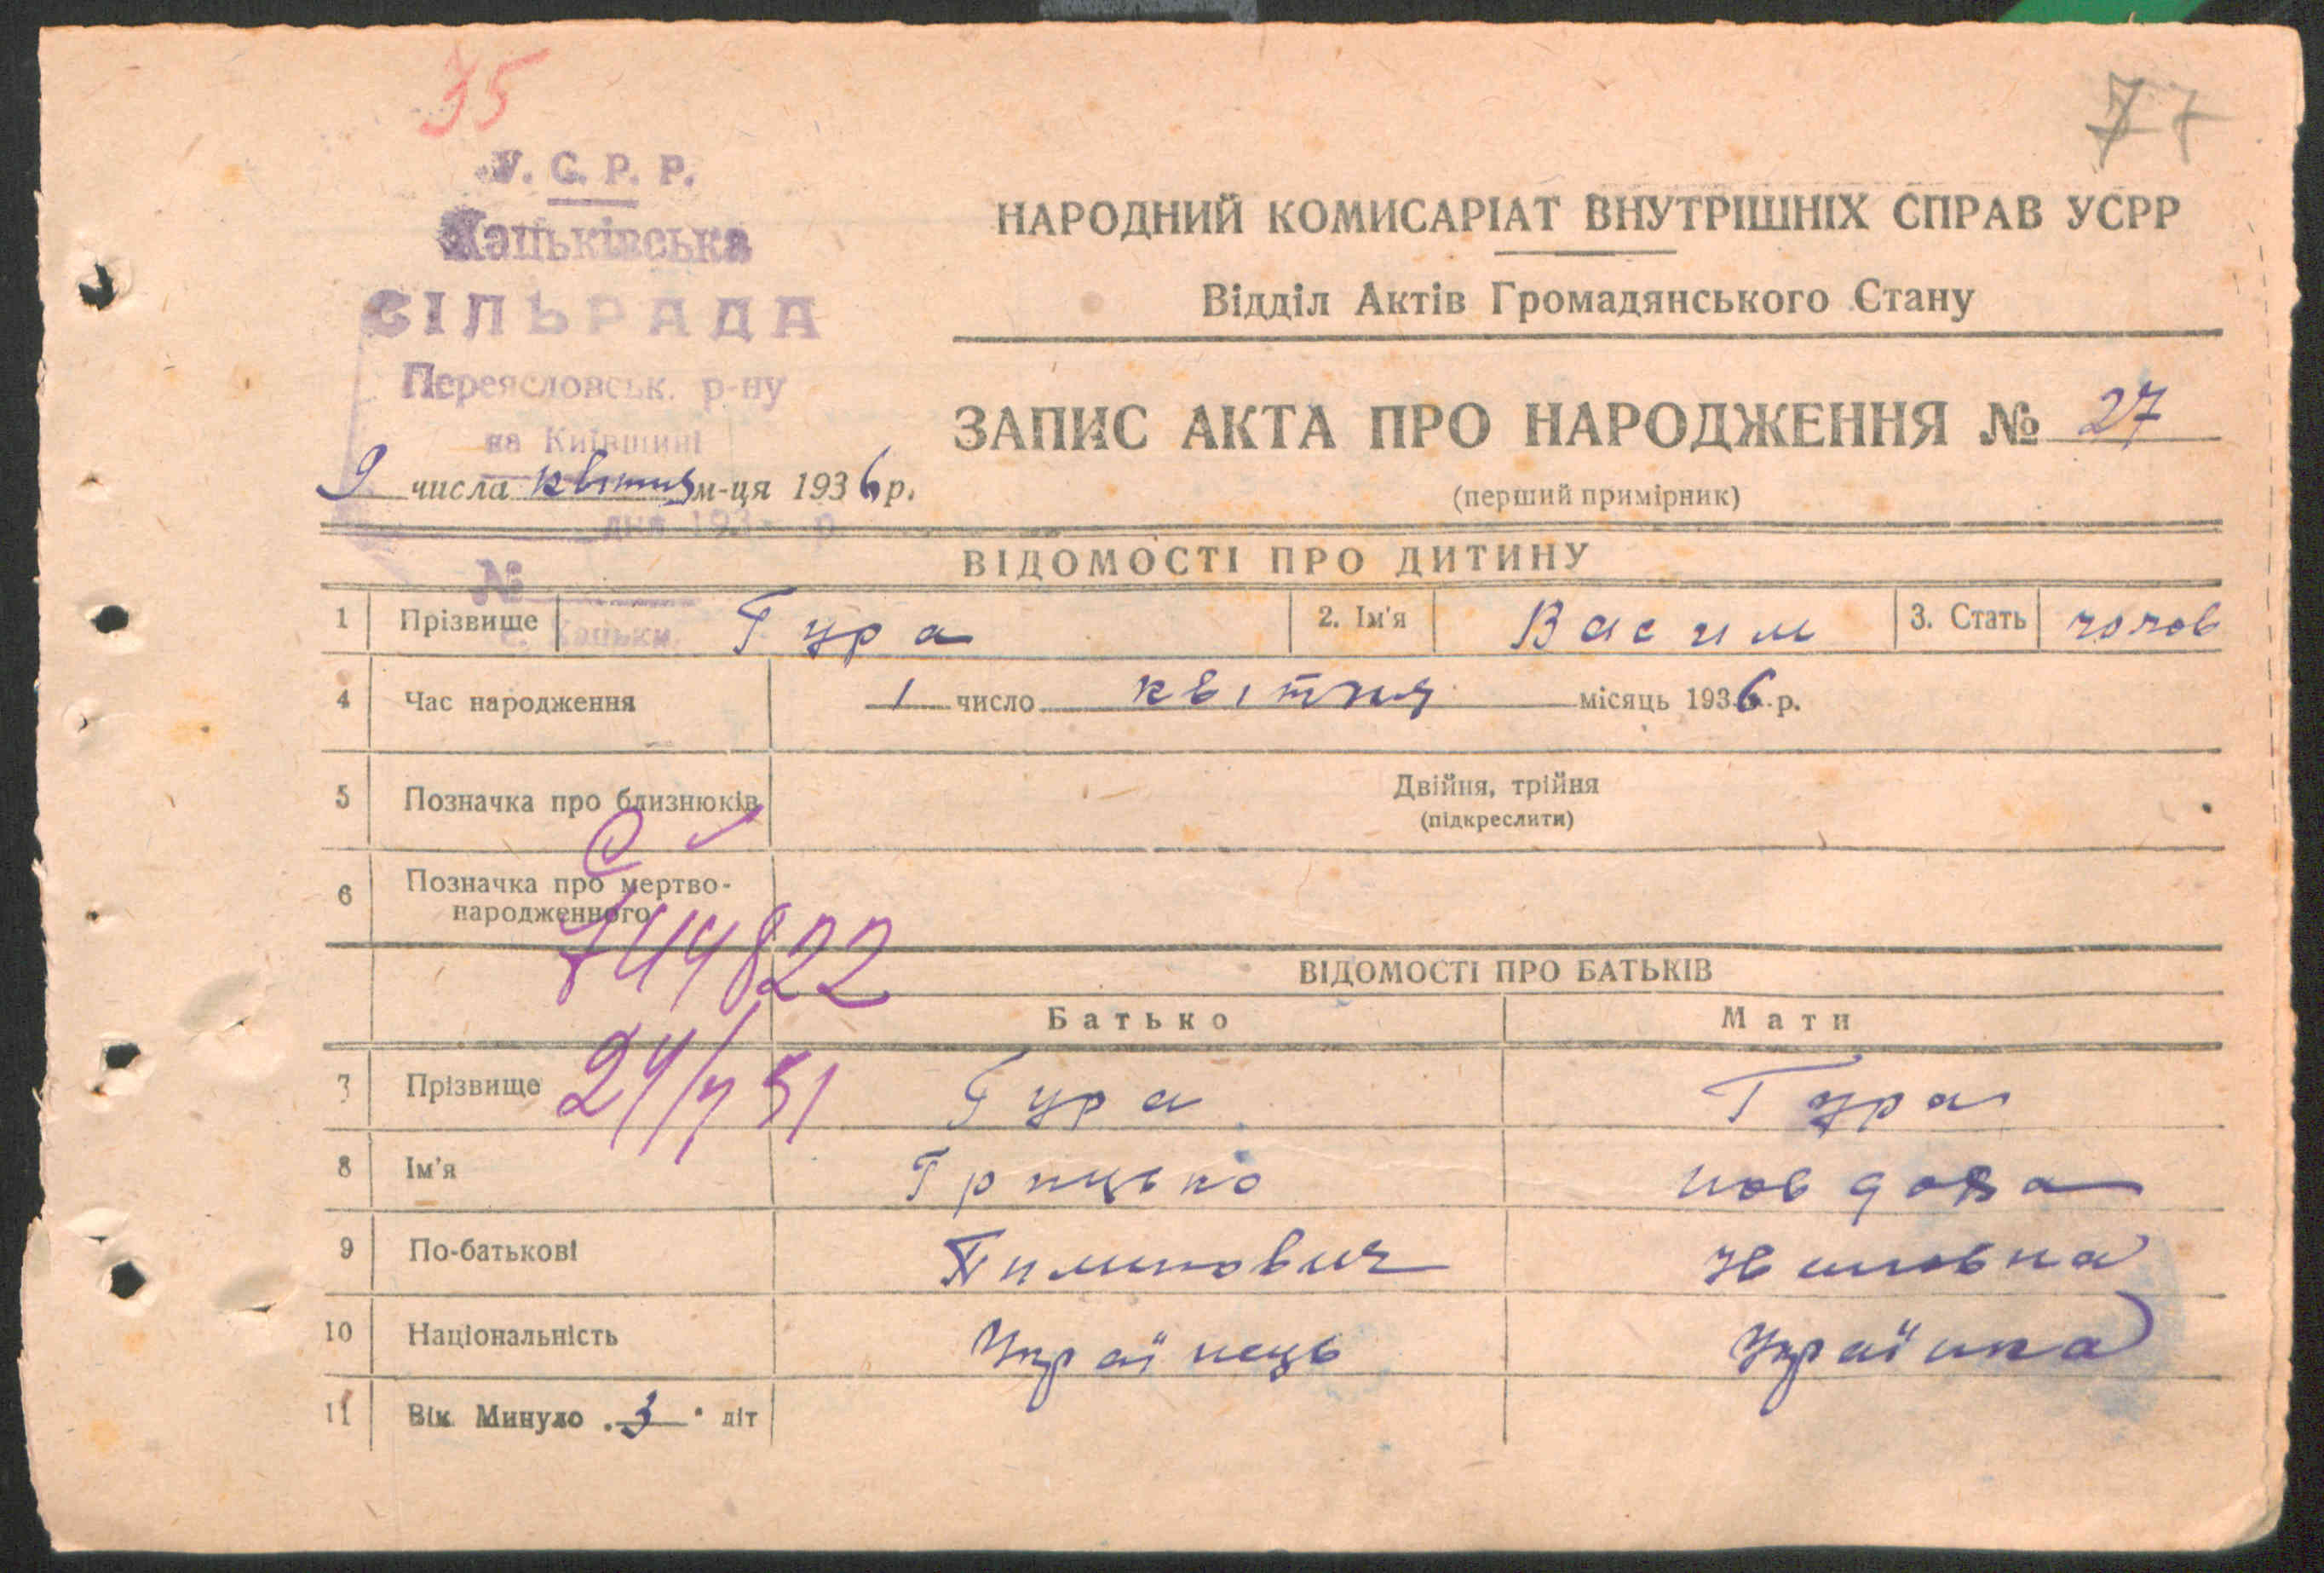 35
77
У. С. Р. Р.
Хацьківська
СІЛЬРАДА
Переясловськ. р-ну
на Київщині
НАРОДНИЙ КОМИСАРІАТ ВНУТРІШНІХ СПРАВ УСРР
Відділ Актів Громадянського Стану
ЗАПИС АКТА ПРО НАРОДЖЕННЯ № 27
(перший примірник)
9 числа квітня м-ця 1936 р.
дня 193 р.
№
с. Хацьки
ВІДОМОСТІ ПРО ДИТИНУ
1 Прізвище Гура 2. Ім'я Васил 3. Стать чолов
4 Час народження 1 число квітня місяць 1936 р.
5 Позначка про близнюків Двійня, трійня
(підкреслити)
6 Позначка про мертво-
народженного
744822
ВІДОМОСТІ ПРО БАТЬКІВ
Батько Мати
7 Прізвище Гура Гура
8 Ім'я Грицько
9 По-батькові
10 Національність Українець Українка
11 Вік Минуло 3 літ